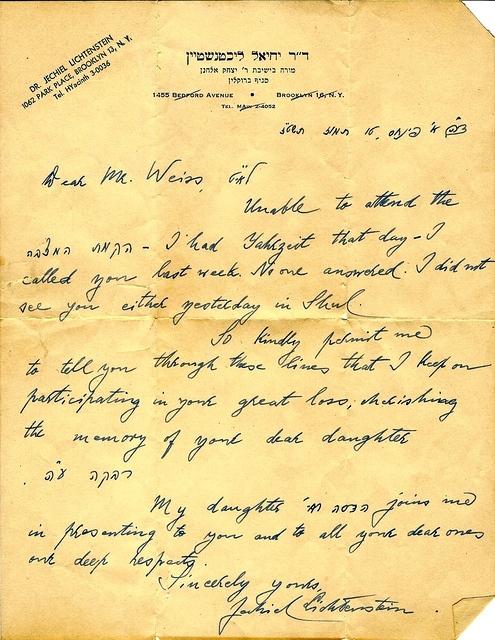 DR. JECHIEL LICHTENSTEIN
1062 PARK PLACE, BROOKLYN 13, N. Y.
Tel. HYacinth 3-0036
ד״ר יחיאל ליכטנשטיין
מורה בישיבת ר׳ יצחק אלחנן
סניף ברוקלין
1455 BEDFORD AVENUE • BROOKLYN 16, N. Y.
TEL. MAIN 2-4052
Dear Mr. Weiss,
Unable to attend the
הקמת המצבה – I had Yahrzeit that day – I
called you last week. No one answered. I did not
see you either yesterday in Shul.
So kindly permit me
to tell you through these lines that I keep on
participating in your great loss, cherishing
the memory of your dear daughter
רבקה ע״ה.
My daughter הדסה תחי׳ joins me
in presenting to you and to all your dear ones
our deep respects.
Sincerely yours,
Jechiel Lichtenstein.